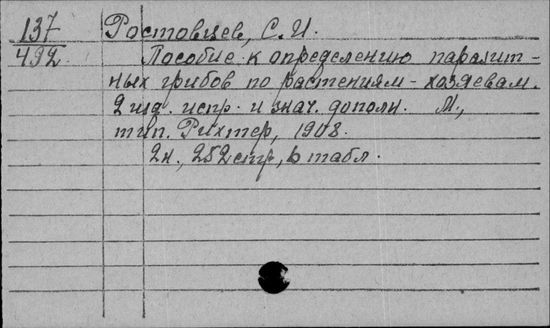 137 Ростовцев, С. И.
492 Пособие к определению паразит-
ных грибов по растениям-хозяевам.
2 изд. испр. и знач. дополн. М.,
тип. Рихтер, 1908.
2н., 252 стр., 6 табл.